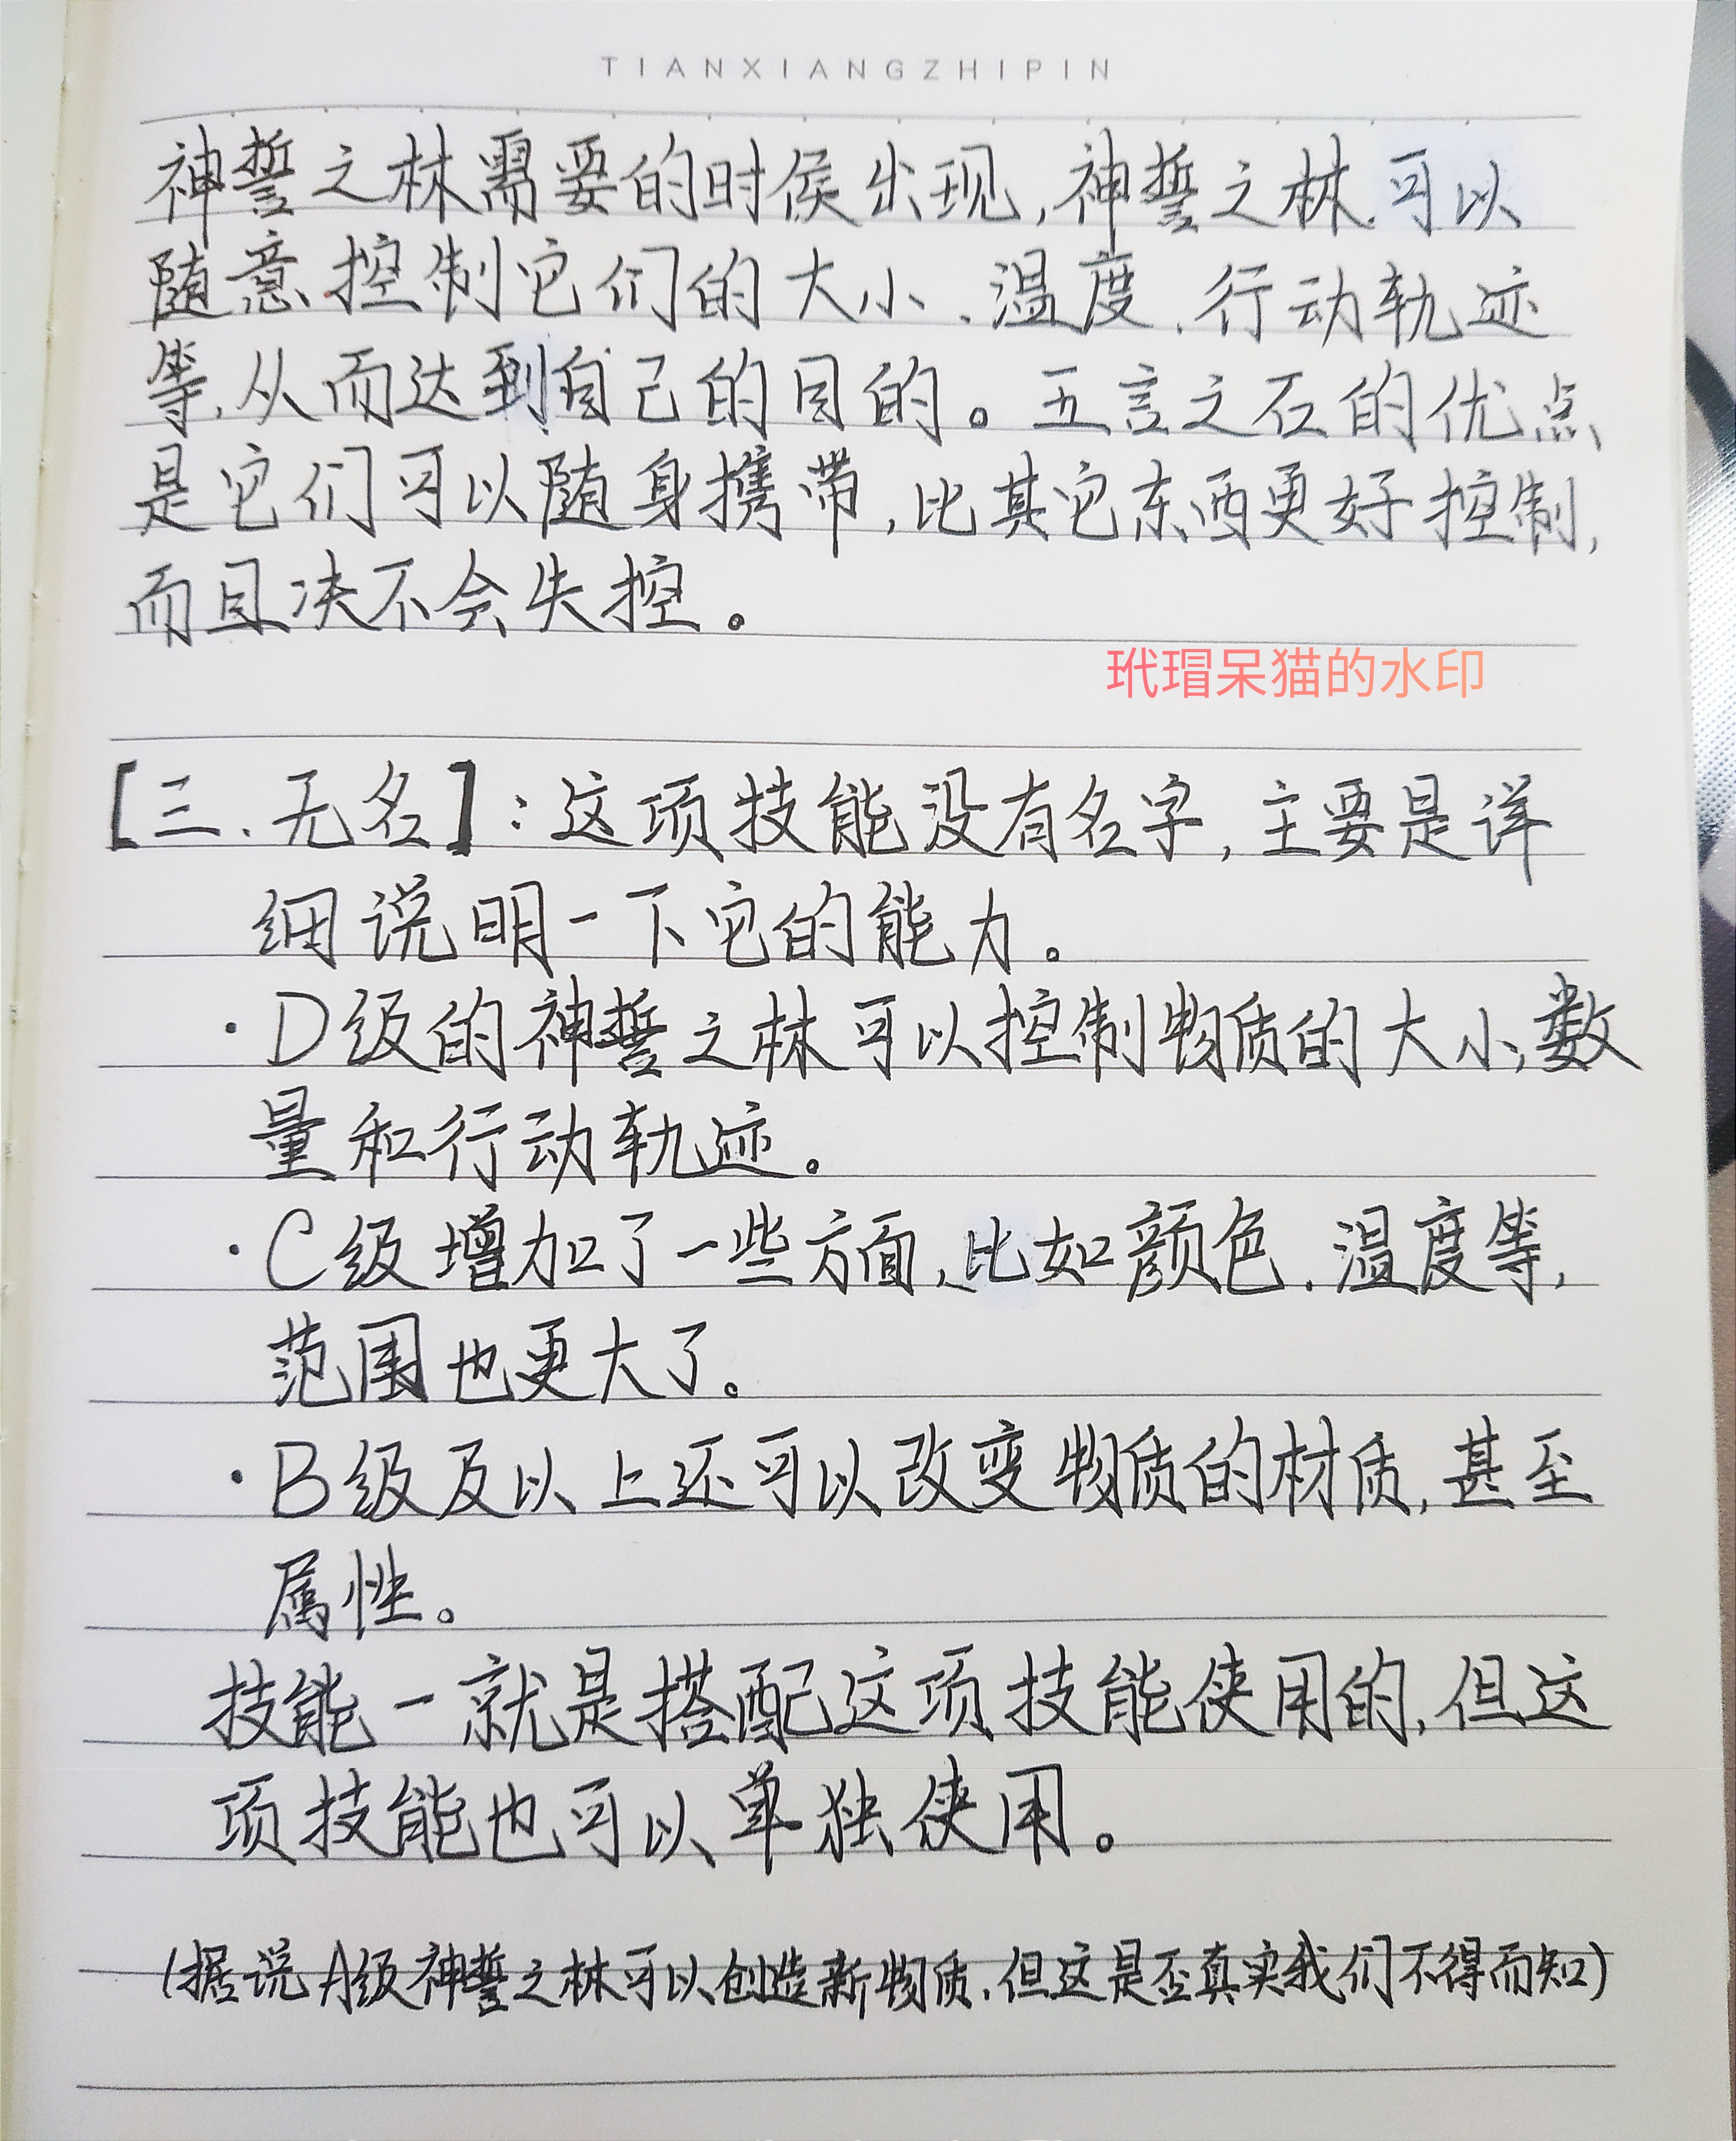 TIANXIANGZHIPIN
神誓之林需要的时侯出现,神誓之林.可以
随意控制它们的大小、温度、行动轨迹
等,从而达到自己的目的。五言之石的优点
是它们可以随身携带,比其它东西更好控制,
而且决不会失控。
玳瑁呆猫的水印
[三、无名]:这项技能没有名字,主要是详
细说明一下它的能力。
·D级的神誓之林可以控制物质的大小,数
量和行动轨迹。
·C级增加了一些方面,比如颜色、温度等,
范围也更大了。
·B级及以上还可以改变物质的材质,甚至
属性。
技能一就是搭配这项技能使用的,但这
项技能也可以单独使用。
(据说A级神誓之林可以创造新物质,但这是否真实我们不得而知)